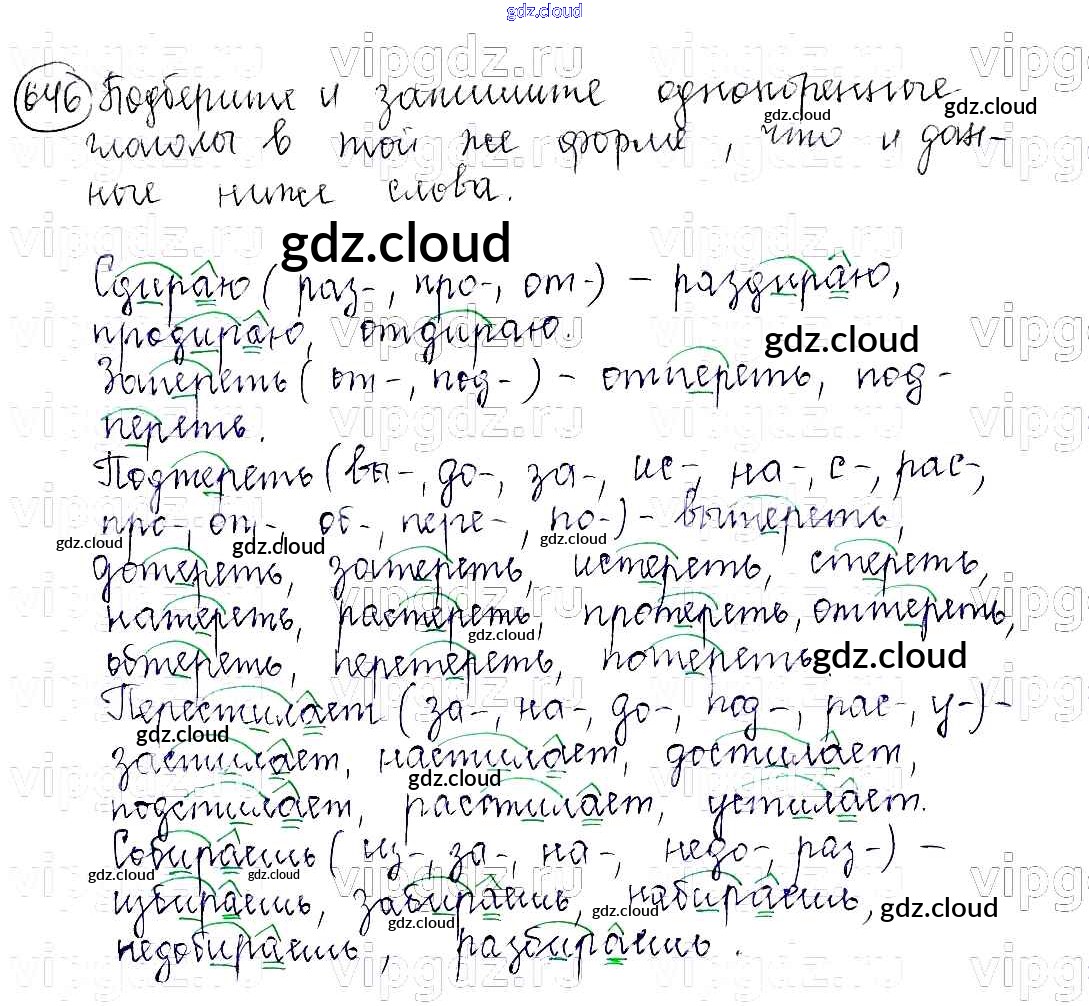 gdz.cloud
646 Подберите и запишите однокоренные
глаголы в той же форме, что и дан-
ные ниже слова.
gdz.cloud
Сдираю (раз-, про-, от-) – раздираю,
продираю, отдираю.
gdz.cloud
Запереть (от-, под-) – отпереть, под-
переть.
Подтереть (вы-, до-, за-, ис-, на-, с-, рас-,
про-, от-, об-, пере-, по-) – вытереть,
gdz.cloud gdz.cloud gdz.cloud
дотереть, затереть, истереть, стереть,
натереть, растереть, протереть, оттереть,
gdz.cloud
обтереть, перетереть, потереть.
gdz.cloud
Перестилает (за-, на-, до-, под-, рас-, у-) –
gdz.cloud
застилает, настилает, достилает,
gdz.cloud
подстилает, расстилает, устилает.
Собираешь (из-, за-, на-, недо-, раз-) –
gdz.cloud gdz.cloud
избираешь, забираешь, набираешь,
gdz.cloud gdz.cloud
недобираешь, разбираешь.